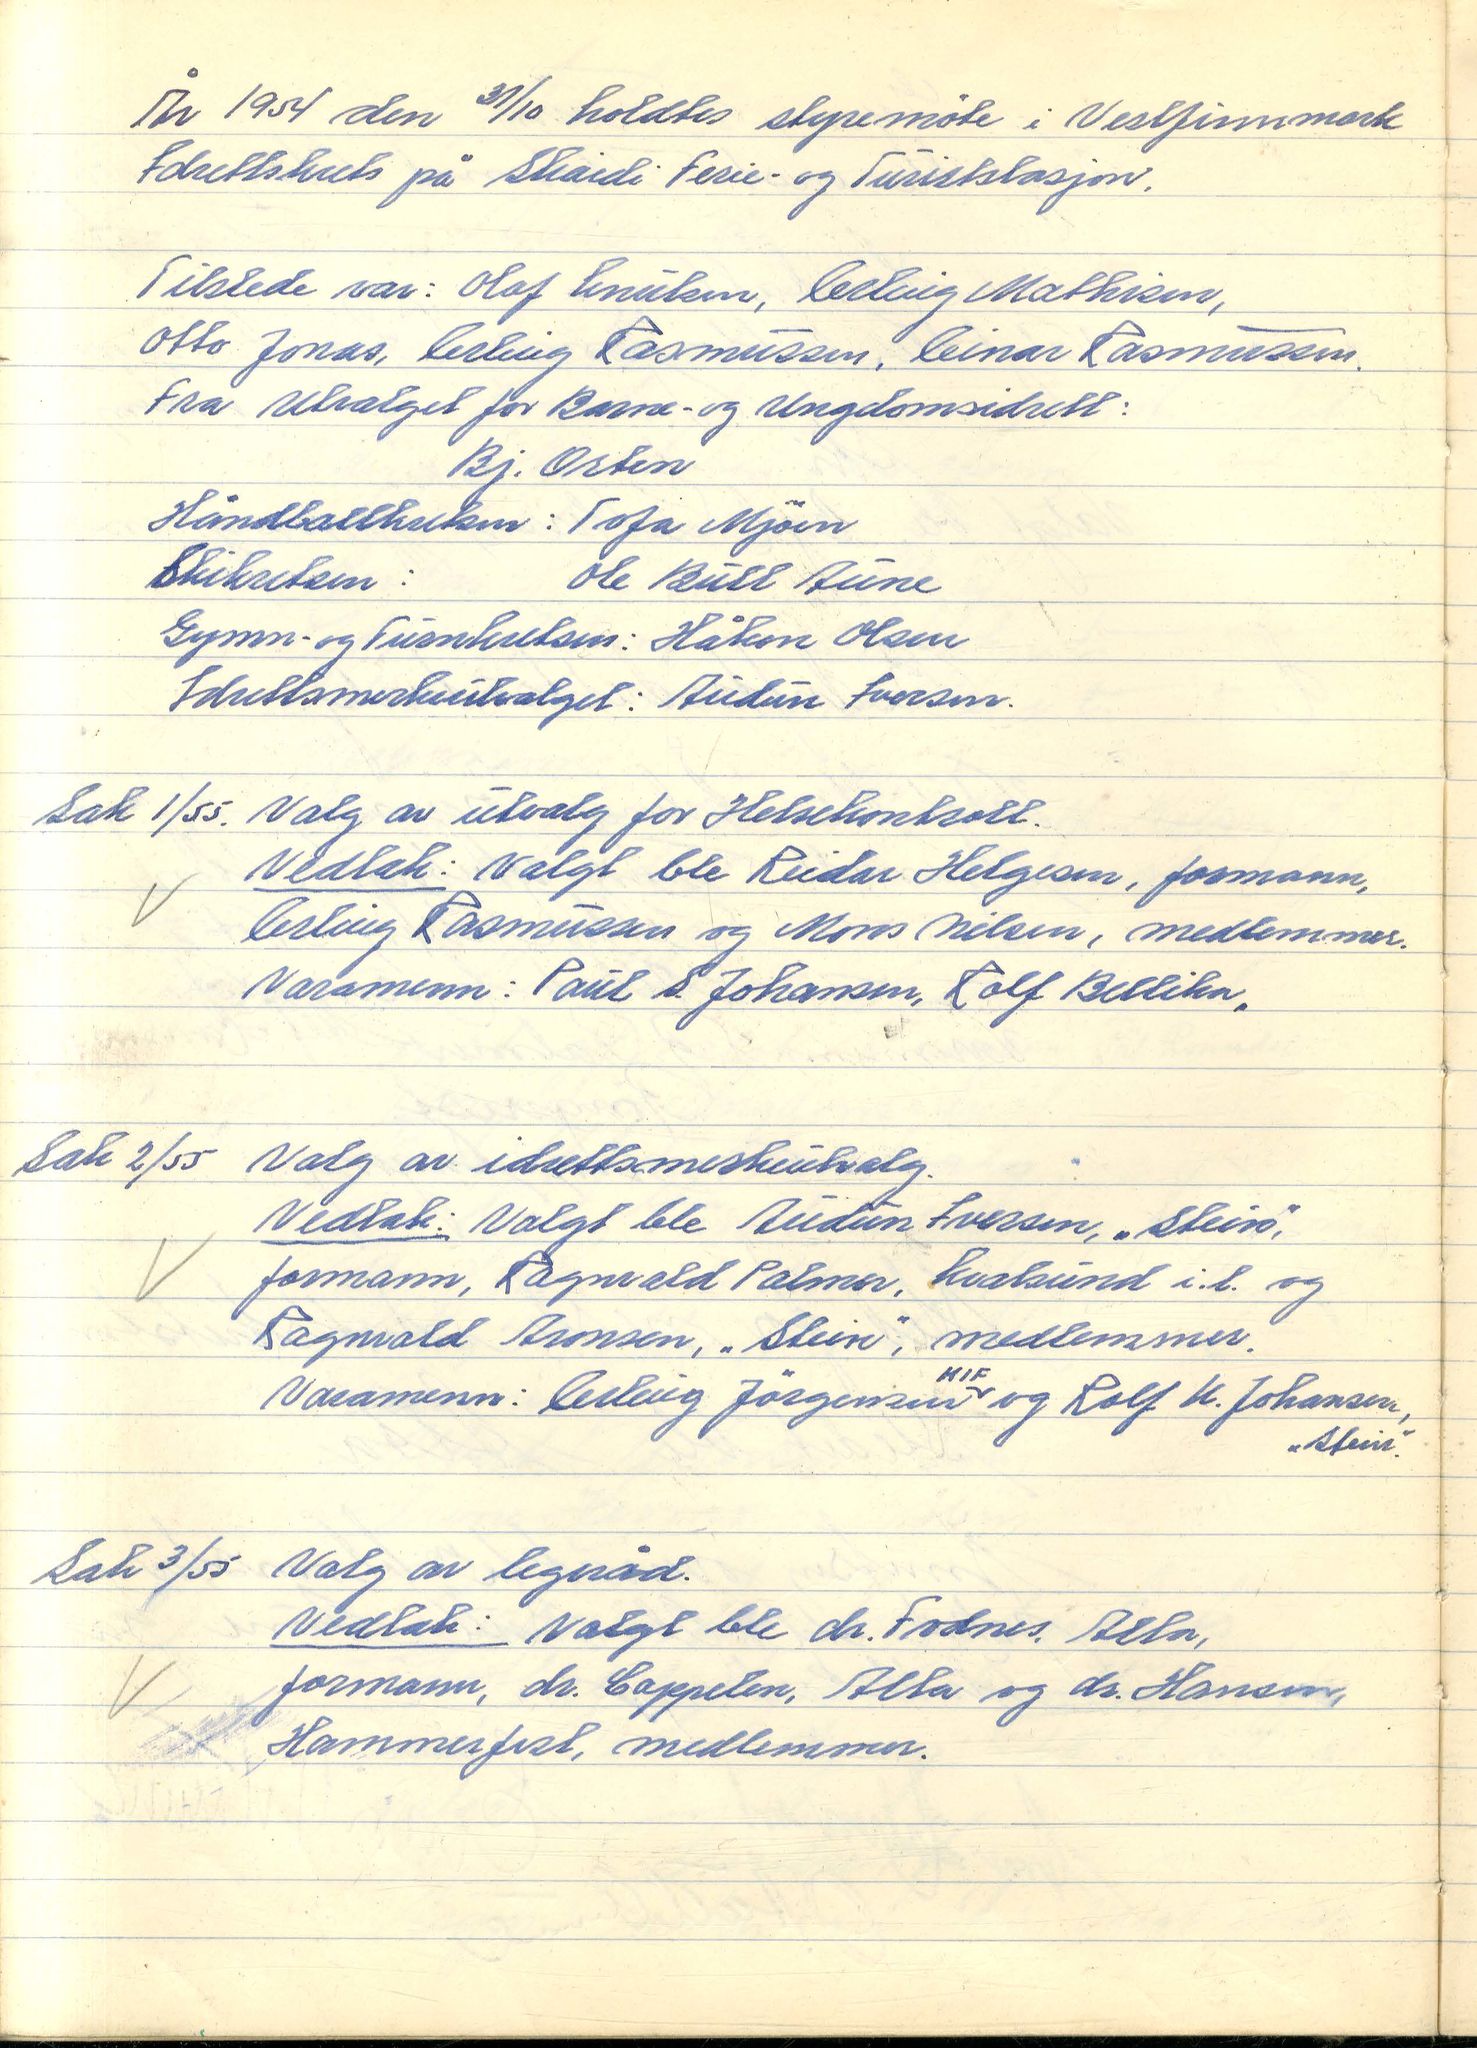 År 1954 den 31/10 holdtes styremöte i Vestfinnmark
Idrettskrets på Skaidi Ferie- og Turiststasjon.
Tilstede var: Olaf Knutsen, Erling Mathisen,
Otto Jonas, Erling Rasmussen, Einar Rasmussen.
Fra Utvalget for Barne- og Ungdomsidrett:
Bj. Orten
Håndballkretsen: Tofa Mjöen
Skikretsen: Ole Bull Aune
Gymn- og Turnkretsen: Håkon Olsen
Idrettsmerkeutvalget: Audun Iversen.
Sak 1/55. Valg av utvalg for Helsekontroll.
Vedtak: Valgt ble Reidar Helgesen, formann,
Erling Rasmussen og Mons Nilsen, medlemmer.
Varamenn: Paul S. Johansen, Rolf Bellika.
Sak 2/55 Valg av idrettsmerkeutvalg.
Vedtak: Valgt ble Audun Iversen, „Stein",
formann, Ragnvald Palmer, Kvalsund i.l. og
Ragnvald Aronsen, „Stein", medlemmer.
Varamenn: Erling Jörgensen HIF og Rolf K. Johansen,
„Stein".
Sak 3/55 Valg av legeråd.
Vedtak: Valgt ble dr. Fodnes, Alta,
formann, dr. Cappelen, Alta og dr. Hansen,
Hammerfest, medlemmer.